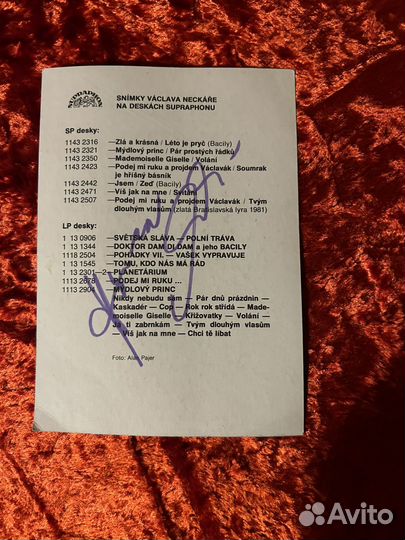 SUPRAPHON
SNÍMKY VÁCLAVA NECKÁŘE
NA DESKÁCH SUPRAPHONU
SP desky:
1143 2316 —Zlá a krásná / Léto je pryč (Bacily)
1143 2321 —Mýdlový princ / Pár prostých řádků
1143 2350 —Mademoiselle Giselle / Volání
1143 2423 —Podej mi ruku a projdem Václavák / Soumrak
je hříšný básník
1143 2442 —Jsem / Zeď (Bacily)
1143 2471 —Víš jak na mne / Svítání
1143 2507 —Podej mi ruku a projdem Václavák / Tvým
dlouhým vlasům (zlatá Bratislavská lyra 1981)
LP desky:
1 13 0906 —SVĚTSKÁ SLÁVA — POLNÍ TRÁVA
1 13 1344 —DOKTOR DAM DI DAM a jeho BACILY
1118 2504 —POHÁDKY VII. — VAŠEK VYPRAVUJE
1 13 1545 —TOMU, KDO NÁS MÁ RÁD
1 13 2301—2—PLANETÁRIUM
1113 2678 —PODEJ MI RUKU ...
1113 2904 —MÝDLOVÝ PRINC
Nikdy nebudu sám — Pár dnů prázdnin —
Kaskadér — Cop — Rok rok střídá — Made-
moiselle Giselle — Křižovatky — Volání —
Já ti zabrnkám — Tvým dlouhým vlasům
— Víš jak na mne — Chci tě líbat
Foto: Alan Pajer
Avito